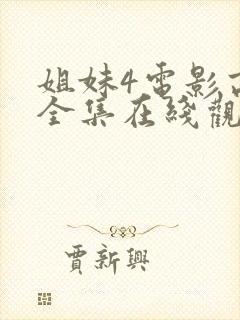 姐妹4電影
全集在綫觀
賈新興